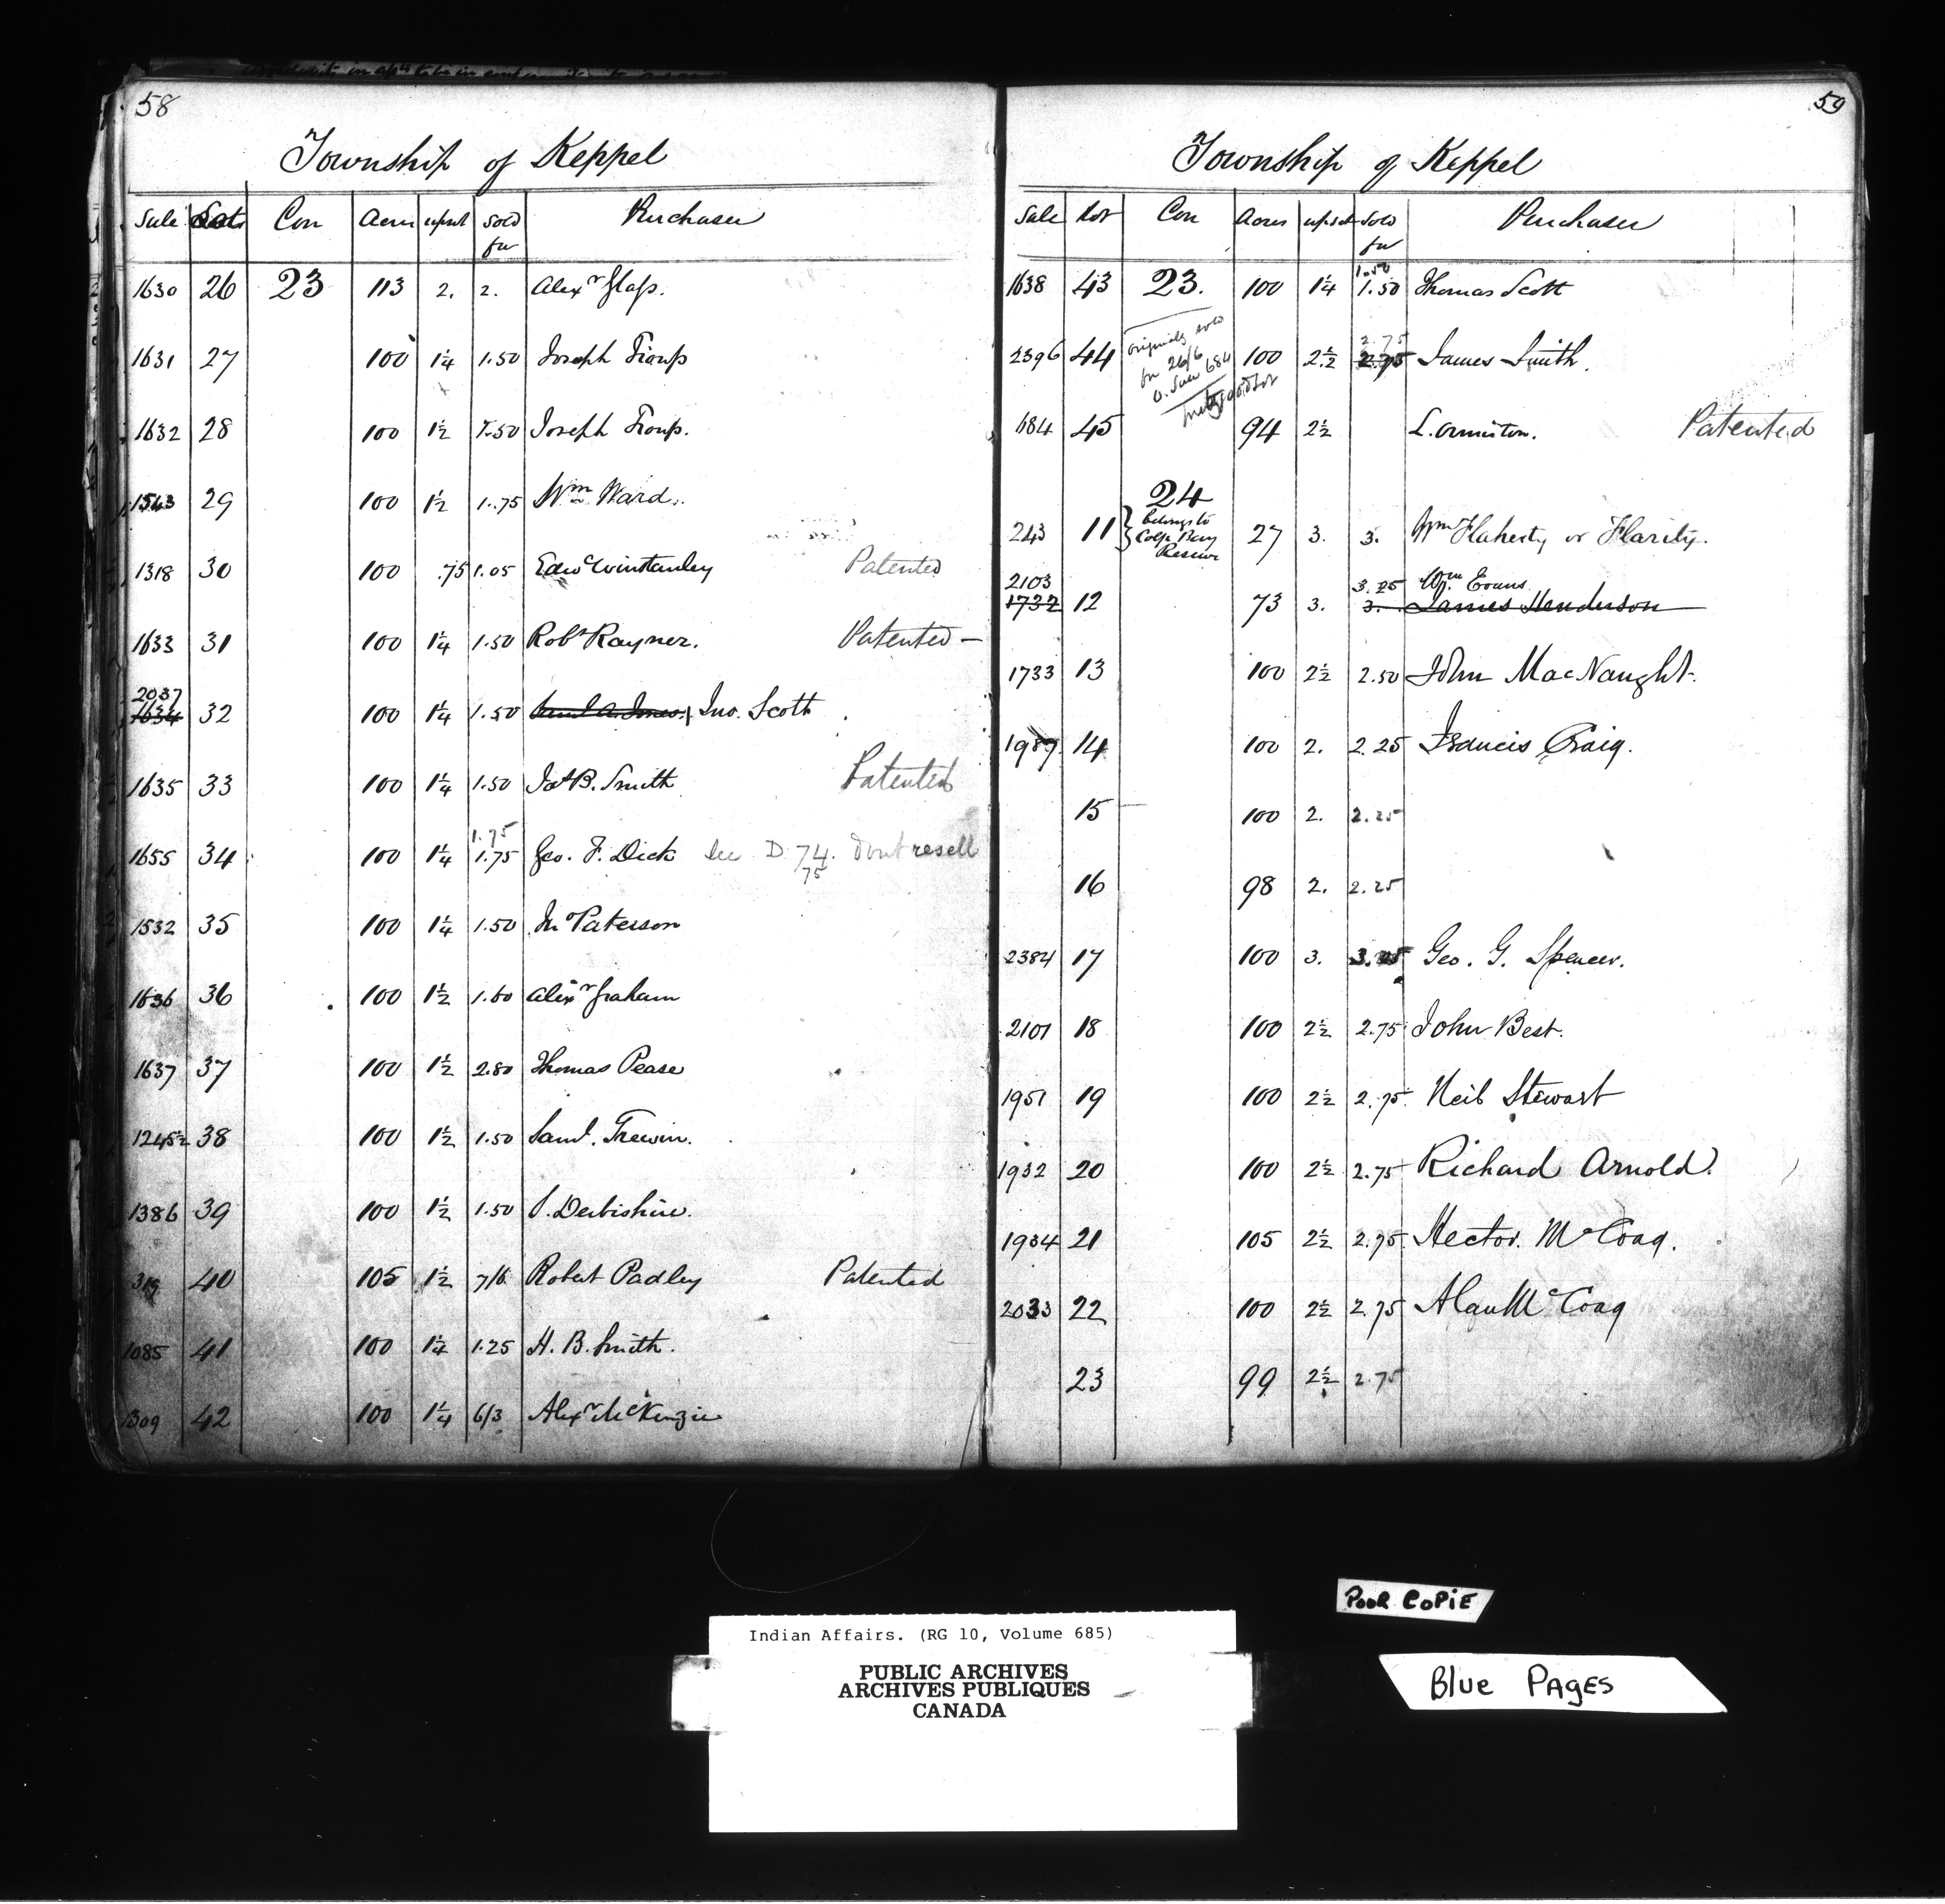 58
Township of Keppel
Sale Lots Con Acres upset sold for Purchaser
1630 26 23 113 2. 2. Alexr Glass.
1631 27 100 1¼ 1.50 Joseph Troup
1632 28 100 1½ 1.50 Joseph Troup.
1543 29 100 1½ 1.75 Wm Ward.
1318 30 100 .75 1.05 Edwd Winstanley Patented
1633 31 100 1¼ 1.50 Robt Rayner. Patented —
2037
1634 32 100 1¼ 1.50 Saml A. Jones Jno. Scott
1635 33 100 1¼ 1.50 Jas B. Smith Patented
1.75
1655 34 100 1¼ 1.75 Geo. F. Dick See D 74. Dont resell
75
1532 35 100 1¼ 1.50 Jno Paterson
1636 36 100 1½ 1.60 Alexr Graham
1637 37 100 1½ 2.80 Thomas Pease
1245½ 38 100 1½ 1.50 Saml. Trewin.
1386 39 100 1½ 1.50 S. Derbishire.
319 40 105 1½ 7/6 Robert Padley Patented
1085 41 100 1¼ 1.25 H. B. Smith.
1309 42 100 1¼ 6/3 Alexr McKenzie
59
Township of Keppel
Sale Lot Con Acres upset Sold for Purchaser
1.50
1638 43 23. 100 1¼ 1.50 Thomas Scott
originally sold
for 26/6
O. Sale 684
2.75
2396 44 100 2½ 2.75 James Smith.
684 45 94 2½ L. Ormiston. Patented
24
243 11 } belongs to Colp. Bay Reserve 27 3. 3. Wm Flaherty or Flarity.
2103 3.25 Wm. Evans
1732 12 73 3. 3. James Henderson
1733 13 100 2½ 2.50 John MacNaught.
1987 14 100 2. 2.25 Francis Craig.
15 100 2. 2.25
16 98 2. 2.25
2384 17 100 3. Geo. G. Spencer.
2101 18 100 2½ 2.75 John Best.
1951 19 100 2½ 2.75 Neil Stewart
1932 20 100 2½ 2.75 Richard Arnold.
1934 21 105 2½ 2.75 Hector. McCoag.
2033 22 100 2½ 2.75 Alan McCoag
23 99 2½ 2.75
POOR COPIE
Indian Affairs. (RG 10, Volume 685)
PUBLIC ARCHIVES
ARCHIVES PUBLIQUES
CANADA
Blue PAGES